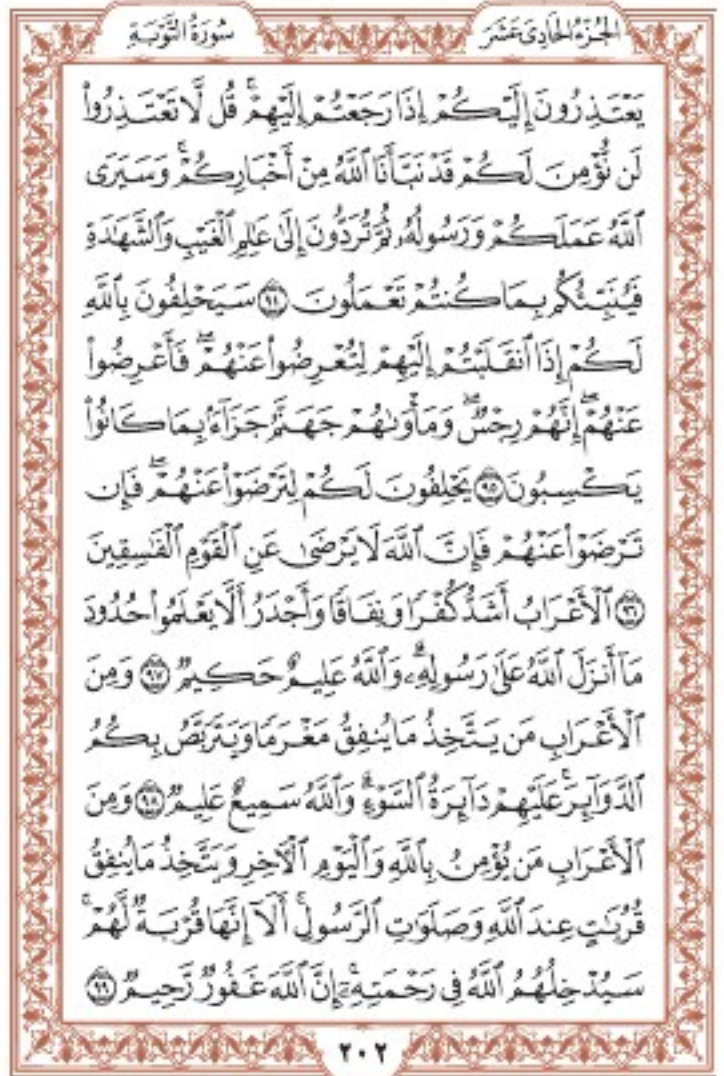 الجُزْءُ الحَادِىَ عَشَرَ
سُورَةُ التَّوْبَةِ
يَعْتَذِرُونَ إِلَيْكُمْ إِذَا رَجَعْتُمْ إِلَيْهِمْ ۚ قُل لَّا تَعْتَذِرُوا۟
لَن نُّؤْمِنَ لَكُمْ قَدْ نَبَّأَنَا ٱللَّهُ مِنْ أَخْبَارِكُمْ ۚ وَسَيَرَى
ٱللَّهُ عَمَلَكُمْ وَرَسُولُهُۥ ثُمَّ تُرَدُّونَ إِلَىٰ عَٰلِمِ ٱلْغَيْبِ وَٱلشَّهَٰدَةِ
فَيُنَبِّئُكُم بِمَا كُنتُمْ تَعْمَلُونَ ٩٤ سَيَحْلِفُونَ بِٱللَّهِ
لَكُمْ إِذَا ٱنقَلَبْتُمْ إِلَيْهِمْ لِتُعْرِضُوا۟ عَنْهُمْ ۖ فَأَعْرِضُوا۟
عَنْهُمْ ۖ إِنَّهُمْ رِجْسٌ ۖ وَمَأْوَىٰهُمْ جَهَنَّمُ جَزَآءًۢ بِمَا كَانُوا۟
يَكْسِبُونَ ٩٥ يَحْلِفُونَ لَكُمْ لِتَرْضَوْا۟ عَنْهُمْ ۖ فَإِن
تَرْضَوْا۟ عَنْهُمْ فَإِنَّ ٱللَّهَ لَا يَرْضَىٰ عَنِ ٱلْقَوْمِ ٱلْفَٰسِقِينَ
٩٦ ٱلْأَعْرَابُ أَشَدُّ كُفْرًا وَنِفَاقًا وَأَجْدَرُ أَلَّا يَعْلَمُوا۟ حُدُودَ
مَآ أَنزَلَ ٱللَّهُ عَلَىٰ رَسُولِهِۦ ۗ وَٱللَّهُ عَلِيمٌ حَكِيمٌ ٩٧ وَمِنَ
ٱلْأَعْرَابِ مَن يَتَّخِذُ مَا يُنفِقُ مَغْرَمًا وَيَتَرَبَّصُ بِكُمُ
ٱلدَّوَآئِرَ ۚ عَلَيْهِمْ دَآئِرَةُ ٱلسَّوْءِ ۗ وَٱللَّهُ سَمِيعٌ عَلِيمٌ ٩٨ وَمِنَ
ٱلْأَعْرَابِ مَن يُؤْمِنُ بِٱللَّهِ وَٱلْيَوْمِ ٱلْءَاخِرِ وَيَتَّخِذُ مَا يُنفِقُ
قُرُبَٰتٍ عِندَ ٱللَّهِ وَصَلَوَٰتِ ٱلرَّسُولِ ۚ أَلَآ إِنَّهَا قُرْبَةٌ لَّهُمْ ۚ
سَيُدْخِلُهُمُ ٱللَّهُ فِى رَحْمَتِهِۦٓ ۗ إِنَّ ٱللَّهَ غَفُورٌ رَّحِيمٌ ٩٩
٢٠٢